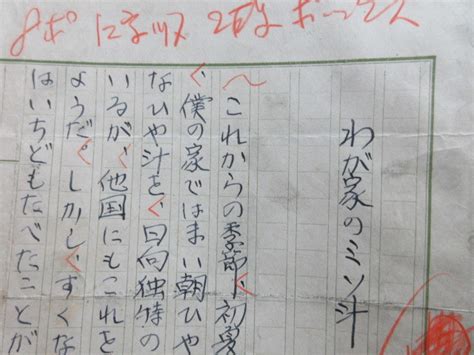 8ポ 12字 2段 ボックス
わが家のミソ汁
これからの季節、初夏
、僕の家ではまい朝ひや
なひや汁を、日向独特の
いるが、他国にもこれを
ようだ。しかし、すくな
はいちどもたべたことが